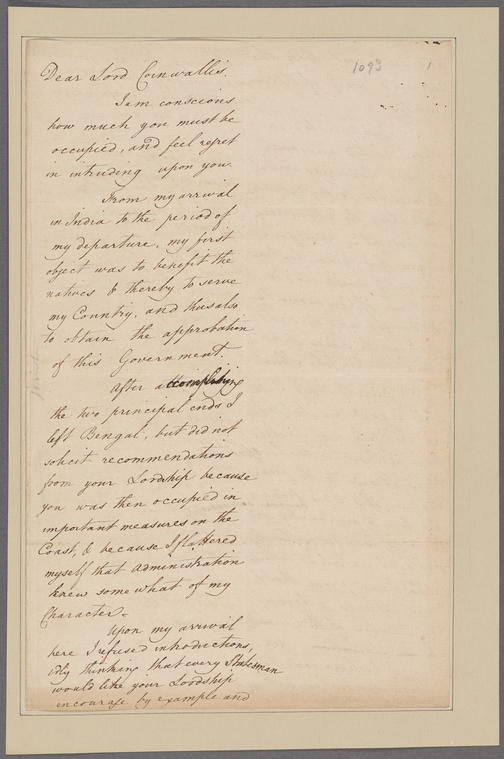 1093
Dear Lord Cornwallis.
I am conscious
how much you must be
occupied, and feel regret
in intruding upon you.
From my arrival
in India to the period of
my departure, my first
object was to benefit the
natives & thereby to serve
my Country, and thus also
to obtain the approbation
of this Government.
After accomplishing
the two principal ends I
left Bengal, but did not
solicit recommendations
from your Lordship because
you was then occupied in
important measures on the
Coast, & because I flattered
myself that Administration
knew somewhat of my
Character.
Upon my arrival
here I refused introductions,
idly thinking that every Statesman
would like your Lordship
encourage by example and